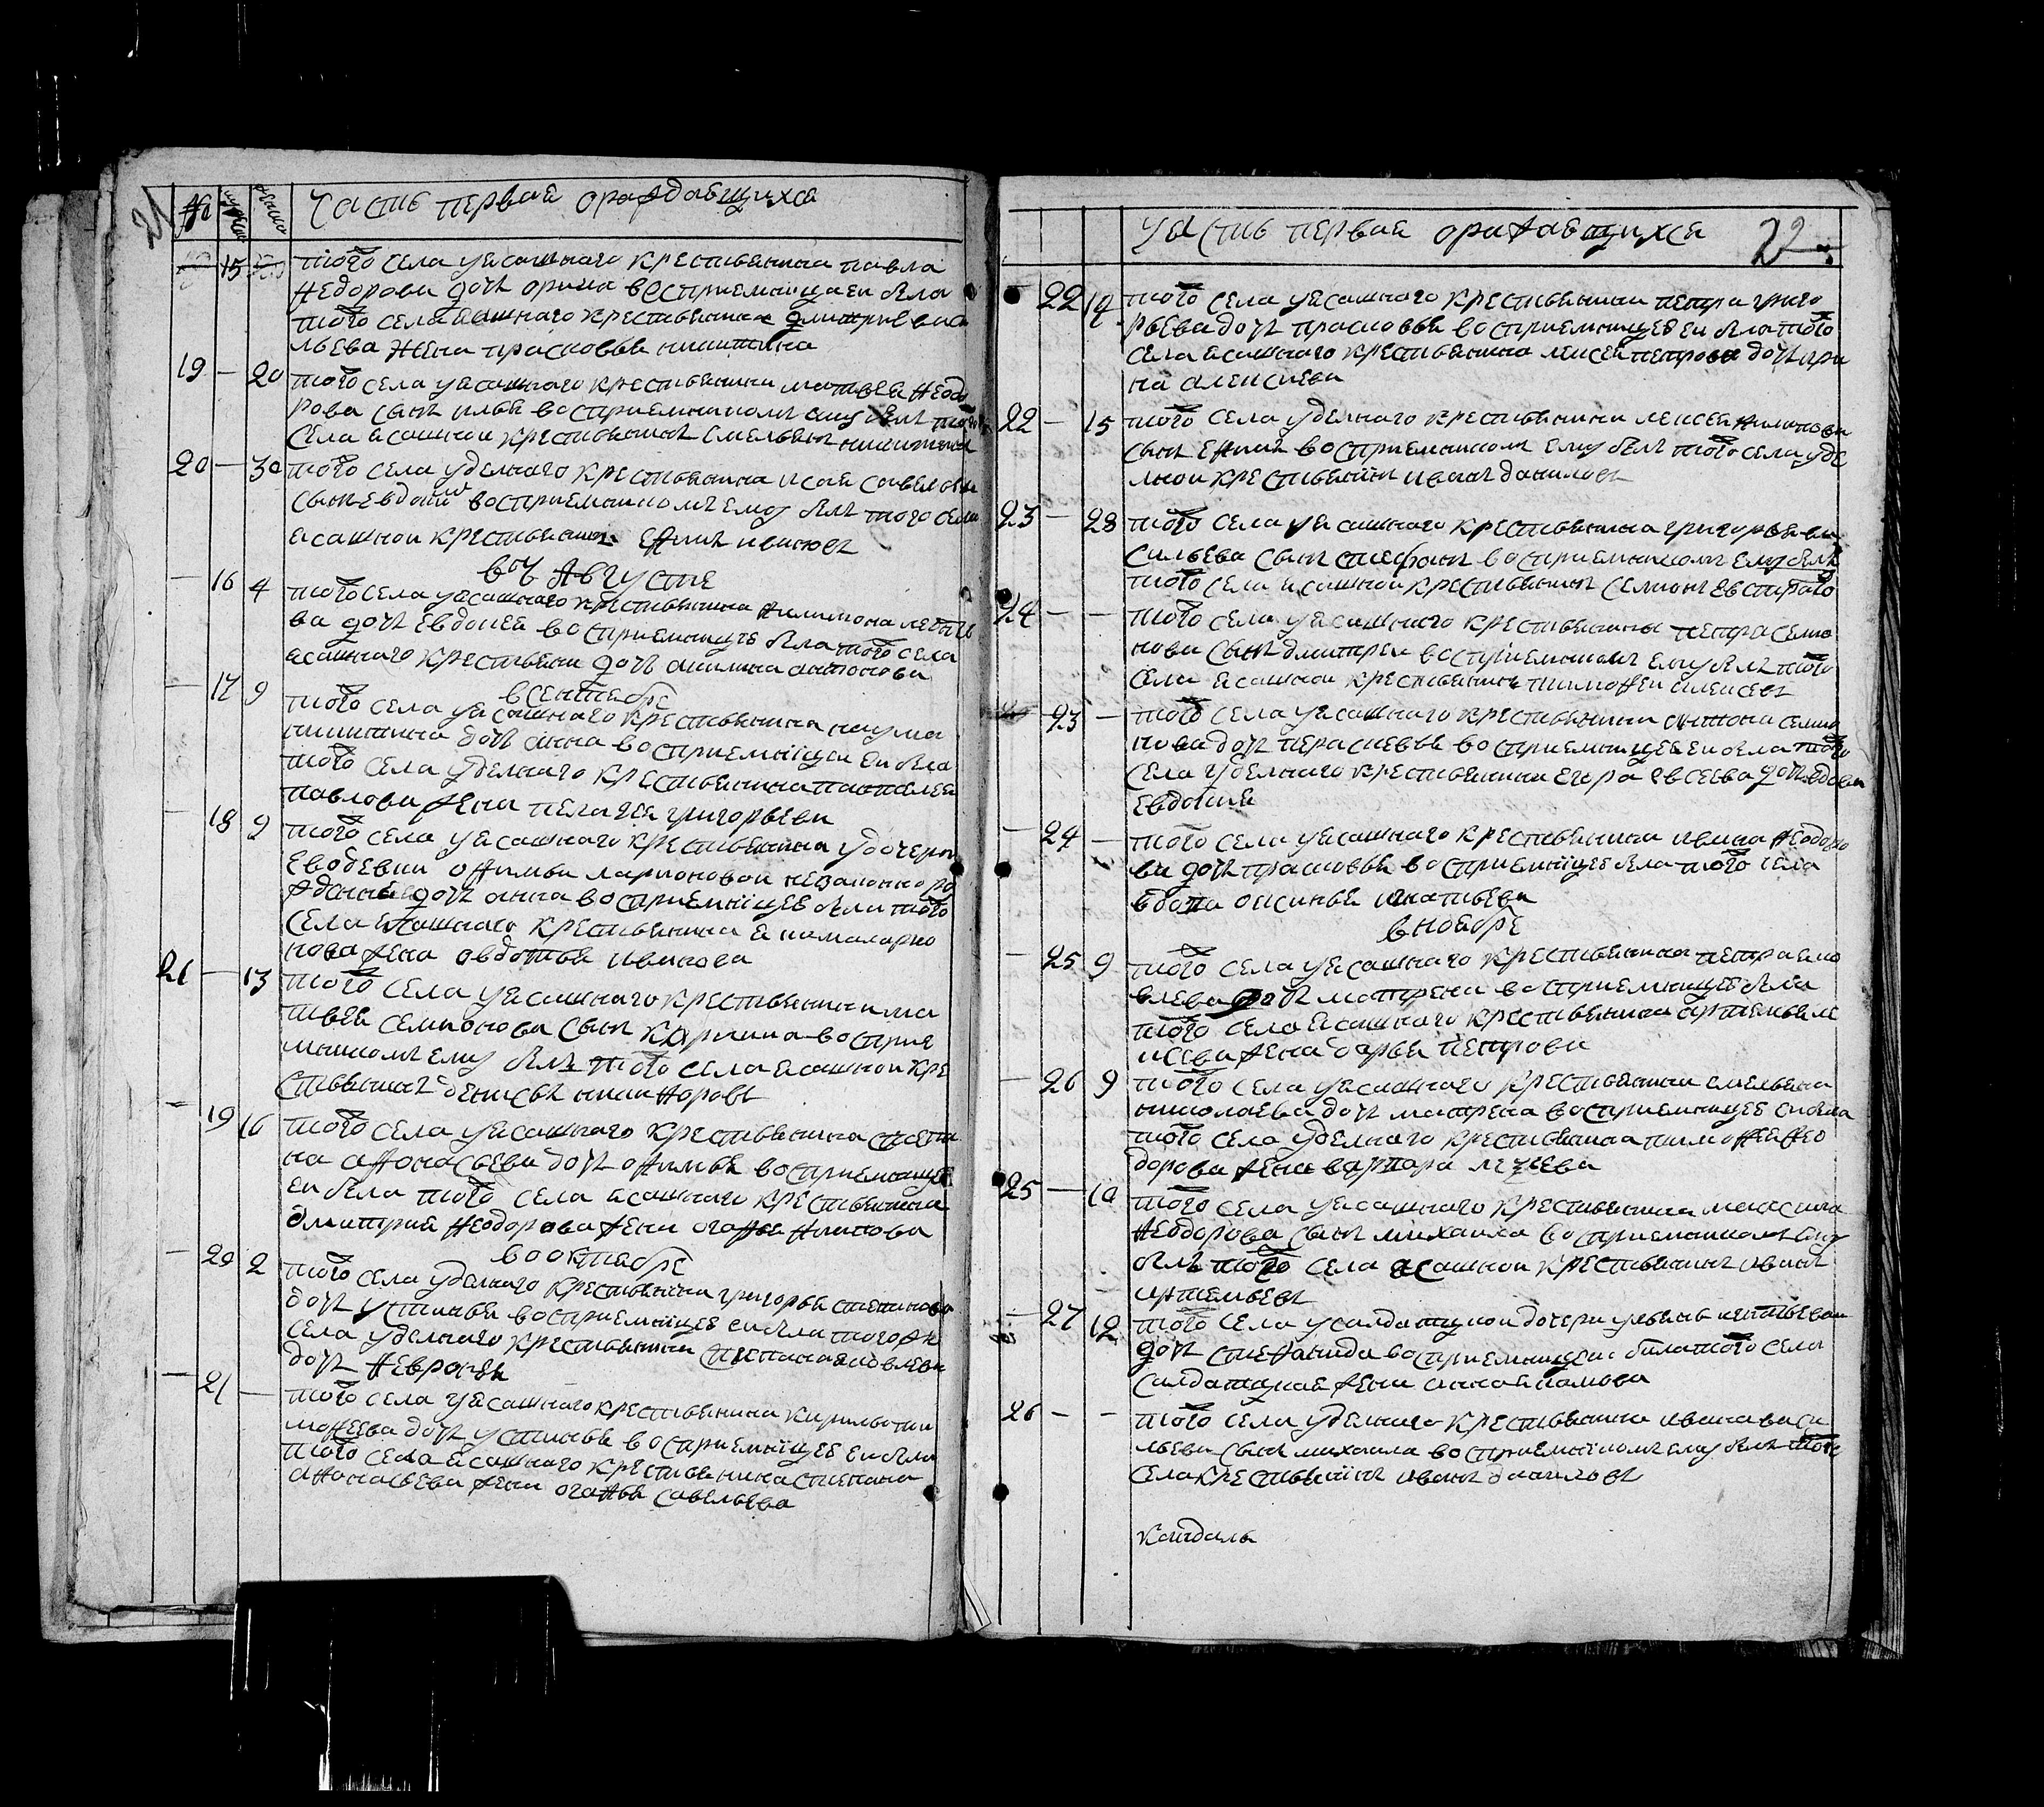 21
Часть первая о раждавщихся
15
того села у ясашного крестьянина павла
Федорова дочь орина восприемница еи была
того села ясашного крестьянина дмитрия васи
льева жена прасковья никитина
19 — 20 того села у ясашного крестьянина матвея Феодо
рова сынъ илья восприемникомъ ему былъ того
села ясашнои крестьянинъ Емельянъ
20 — 30 того села удельного крестьянина исая савельева
сынъ евдоким восприемникомъ ему былъ того села
ясашнои крестьянинъ ефимъ ивановъ
въ Августе
— 16 4 того села у ясашного крестьянина Филимона
ва дочь Евдокея восприемнице была того села
ясашного крестьянина дочь акилина антонова
в сентябре
— 17 9 того села у ясашного крестьянина наума
никитина дочь анна восприемницеи еи была
того села удельного крестьянина пантелея
павлова жена пелагея григорьева
— 18 9 того села у ясашного крестьянина у дочери
офимьи ларионовои незаконно ро
жденная дочь анна восприемницея была того
села ясашного крестьянина
нова жена овдотья иванова
21 — 13 того села у ясашного крестьянина ма
твея семионова сынъ восприе
мникомъ ему былъ того села ясашнои кре
стьянинъ денисъ никифоровъ
— 19 16 того села у ясашного крестьянина степа
на афонасьева дочь офимья восприемнице
еи была того села ясашного крестьянина
дмитрия Феодорова жена огафья
в октябре
— 20 2 того села удельного крестьянина григорья степанова
дочь устинья восприемнице еи была того же
села удельного крестьянина степана яковлева
дочь Февронья
— 21 — того села у ясашного крестьянина кирилы тим
мофеева дочь устинья восприемнице еи была
того села ясашного крестьянина степана
афонасьева жена огафья савельева
Часть первая о раждавщихся 22
22 14 того села у ясашного крестьянина петра григо
рьева дочь прасковья восприемницея еи была того
села ясашного крестьянина лексея петрова дочь ири
на алексиева
22 — 15 того села удельного крестьянина лексея
сынъ ефимъ восприемникомъ ему былъ того села уде
льнои крестьянинъ иванъ даниловъ
23 — 28 того села у ясашного крестьянина григорья ва
сильева сынъ стефанъ восприемникомъ ему былъ
того села ясашнои крестьянинъ семионъ
24 — — того села у ясашного крестьянина петра семио
нова сынъ дмитреи восприемникомъ ему былъ того
села ясашнои крестьянинъ тимофеи алексеевъ
23 — того села у ясашного крестьянина антона семио
нова дочь параскевья восприемницея еи была того
села удельного крестьянина егора евсеева дочь
Евдокия
— 24 — того села у ясашного крестьянина ивана Феодоро
ва дочь прасковья восприемнице была того села
вдова оксинья игнатьева
в ноябре
— 25 9 того села у ясашного крестьянина петра яко
влева дочь матрена восприемнице была
того села ясашного крестьянина артемья
жена дарья петрова
— 26 9 того села у ясашного крестьянина емельяна
николаева дочь матрена восприемнице еи была
того села удельного крестьянина тимофея Фео
дорова жена варвара
25 — 10 того села у ясашного крестьянина максима
Феодорова сынъ михаила восприемникомъ ему
былъ того села ясашнои крестьянинъ иванъ
артемьевъ
— 27 12 того села у салдатцкои дочери ульяны
дочь стефанида восприемницеи была того села
салдатцкая жена анна
26 — — того села удельного крестьянина ивана васи
льева сынъ михаила восприемникомъ ему былъ того
села крестьянинъ иванъ даниловъ